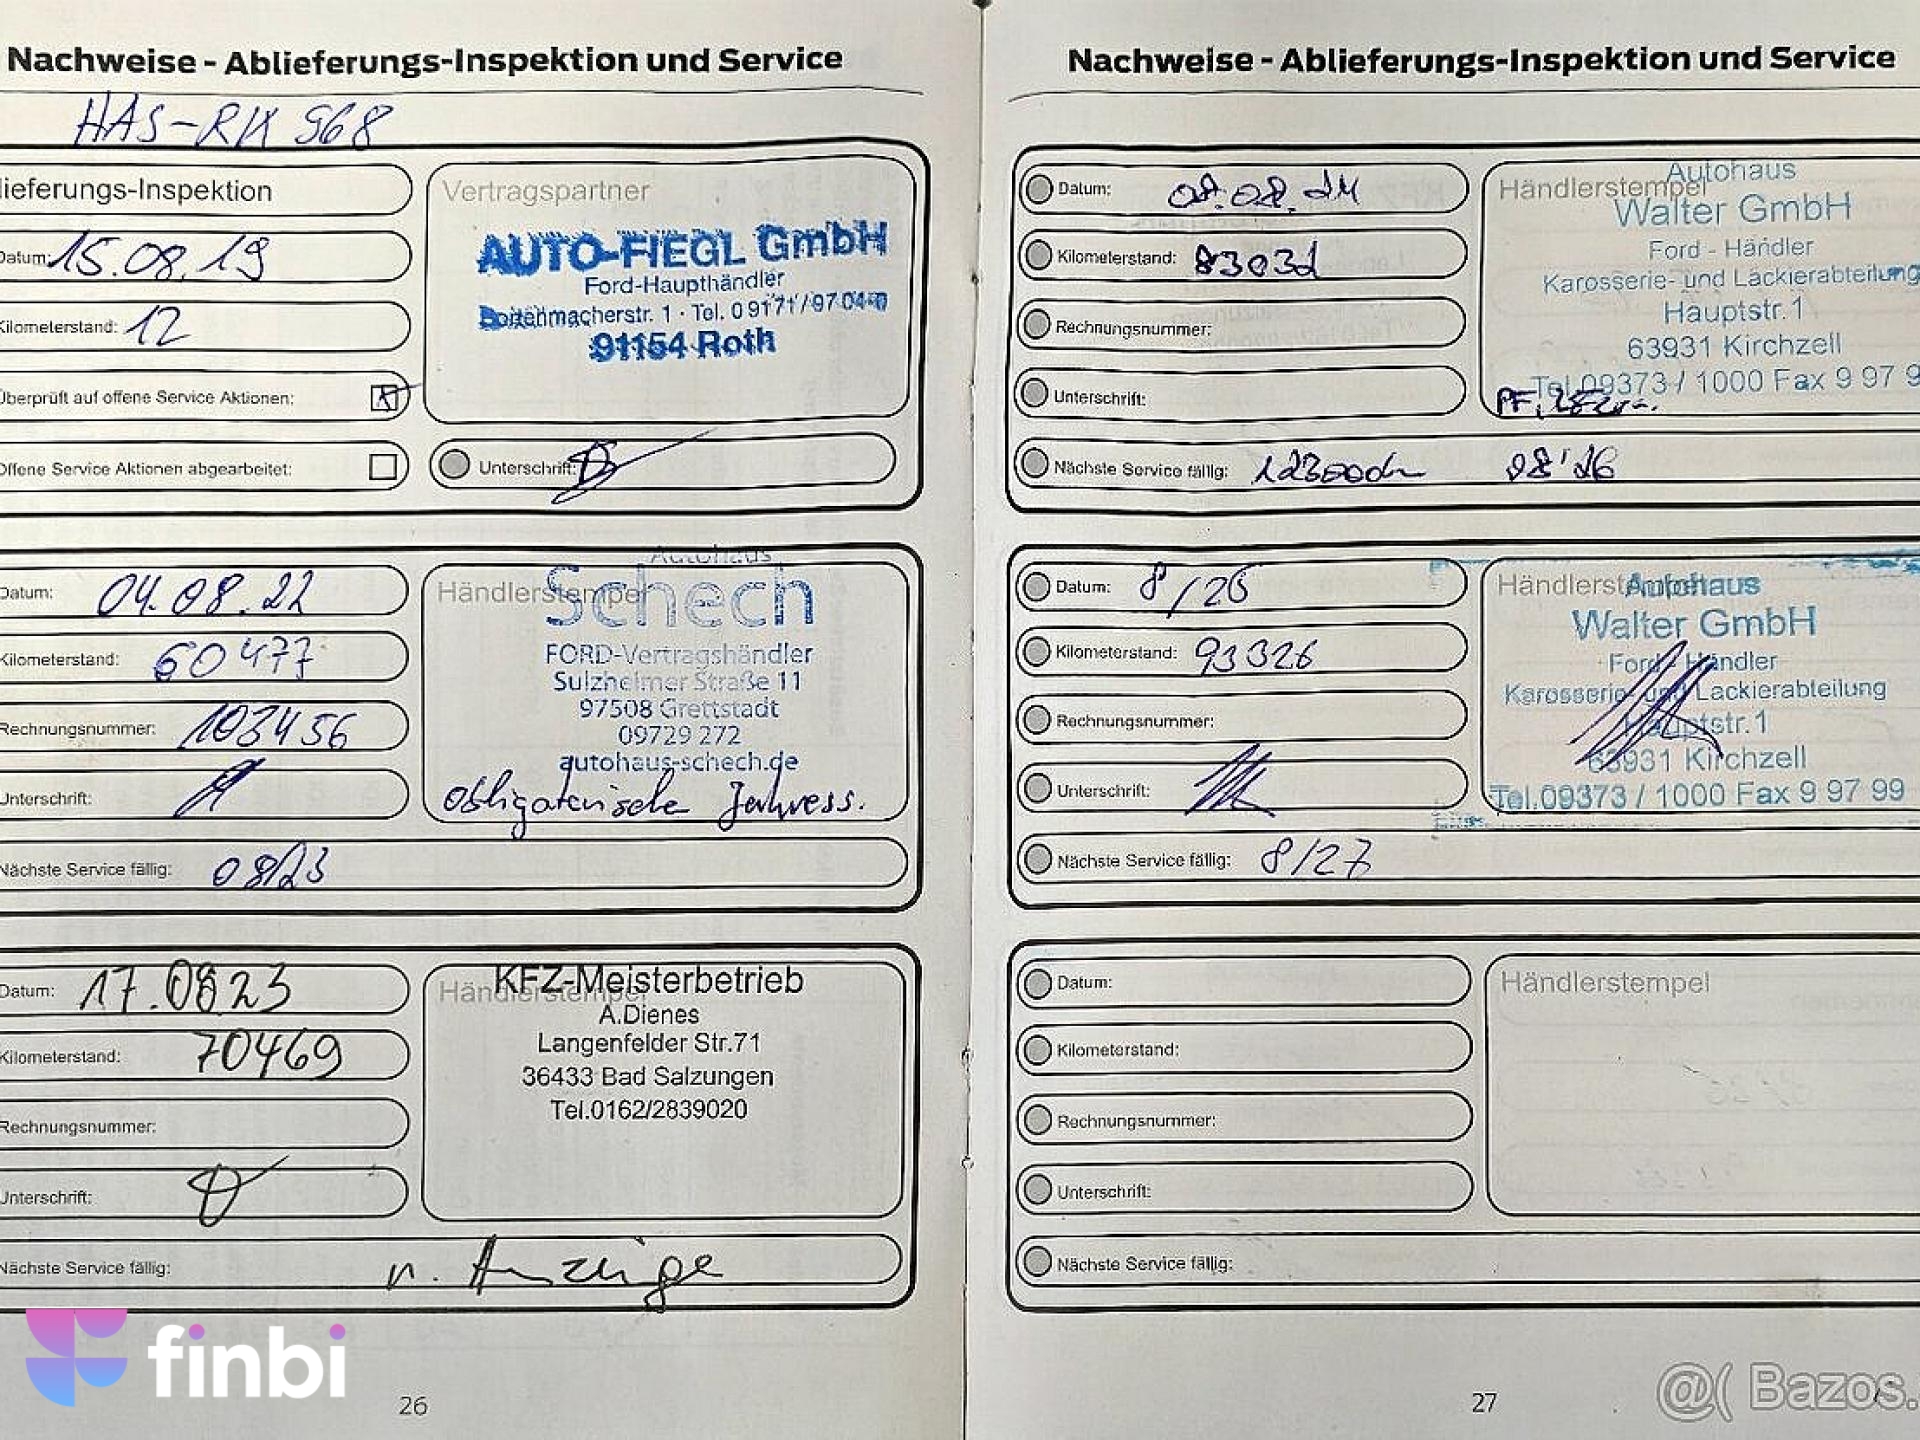 Nachweise - Ablieferungs-Inspektion und Service
HAS-RK 568
lieferungs-Inspektion
Datum: 15.08.19
Kilometerstand: 12
Überprüft auf offene Service Aktionen:
Offene Service Aktionen abgearbeitet:
Vertragspartner
AUTO-FIEGL GmbH
Ford-Haupthändler
Tel. 09171/9704-0
91154 Roth
Unterschrift:
Datum: 04.08.22
Kilometerstand: 60477
Rechnungsnummer: 103456
Unterschrift:
Händlerstempel
Autohaus
Schech
FORD-Vertragshändler
Sulzheimer Straße 11
97508 Grettstadt
09729 272
autohaus-schech.de
obligatorische
Nächste Service fällig: 08/23
Datum: 17.08.23
Kilometerstand: 70469
Rechnungsnummer:
Unterschrift:
Händlerstempel
KFZ-Meisterbetrieb
A.Dienes
Langenfelder Str.71
36433 Bad Salzungen
Tel.0162/2839020
Nächste Service fällig: n. Anzeige
finbi
26
Nachweise - Ablieferungs-Inspektion und Service
Datum: 08.08.24
Kilometerstand: 83031
Rechnungsnummer:
Unterschrift:
Händlerstempel
Autohaus
Walter GmbH
Ford - Händler
Karosserie- und Lackierabteilung
Hauptstr. 1
63931 Kirchzell
Tel.09373 / 1000 Fax 9 97 9
Nächste Service fällig: 08'26
Datum: 8/25
Kilometerstand: 93326
Rechnungsnummer:
Unterschrift:
Händlerstempel
Autohaus
Walter GmbH
Ford - Händler
Karosserie- und Lackierabteilung
Hauptstr. 1
63931 Kirchzell
Tel.09373 / 1000 Fax 9 97 99
Nächste Service fällig: 8/27
Datum:
Kilometerstand:
Rechnungsnummer:
Unterschrift:
Händlerstempel
Nächste Service fällig:
27
Bazos.